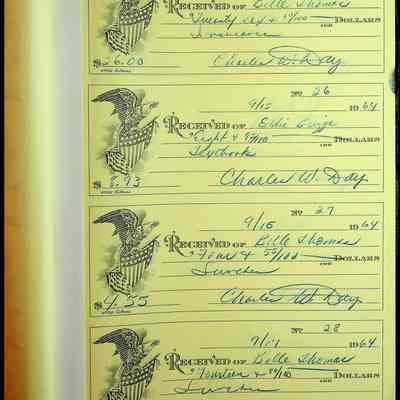 RECEIVED OF Belle Thomas
Twenty six & no/100 AND DOLLARS
Insurance
$26.00 Charles W. Day
No 26
9/15 1964
RECEIVED OF Eddie
Eight & 93/100 AND DOLLARS
$8.93 Charles W. Day
No 27
9/15 1964
RECEIVED OF Belle Thomas
Four & 55/100 AND DOLLARS
$4.55 Charles W. Day
No 28
1964
RECEIVED OF Belle Thomas
Fourteen & AND DOLLARS